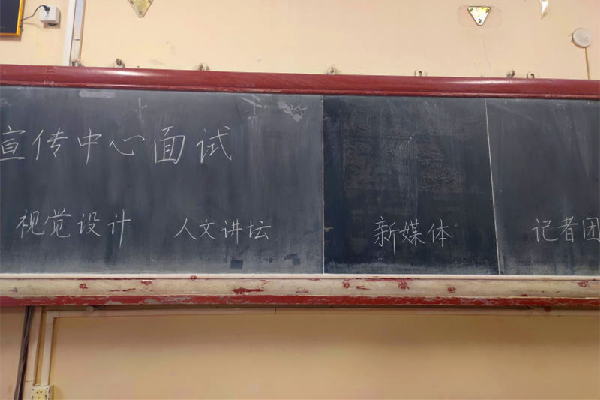 宣传中心面试
视觉设计 人文讲坛 新媒体 记者团